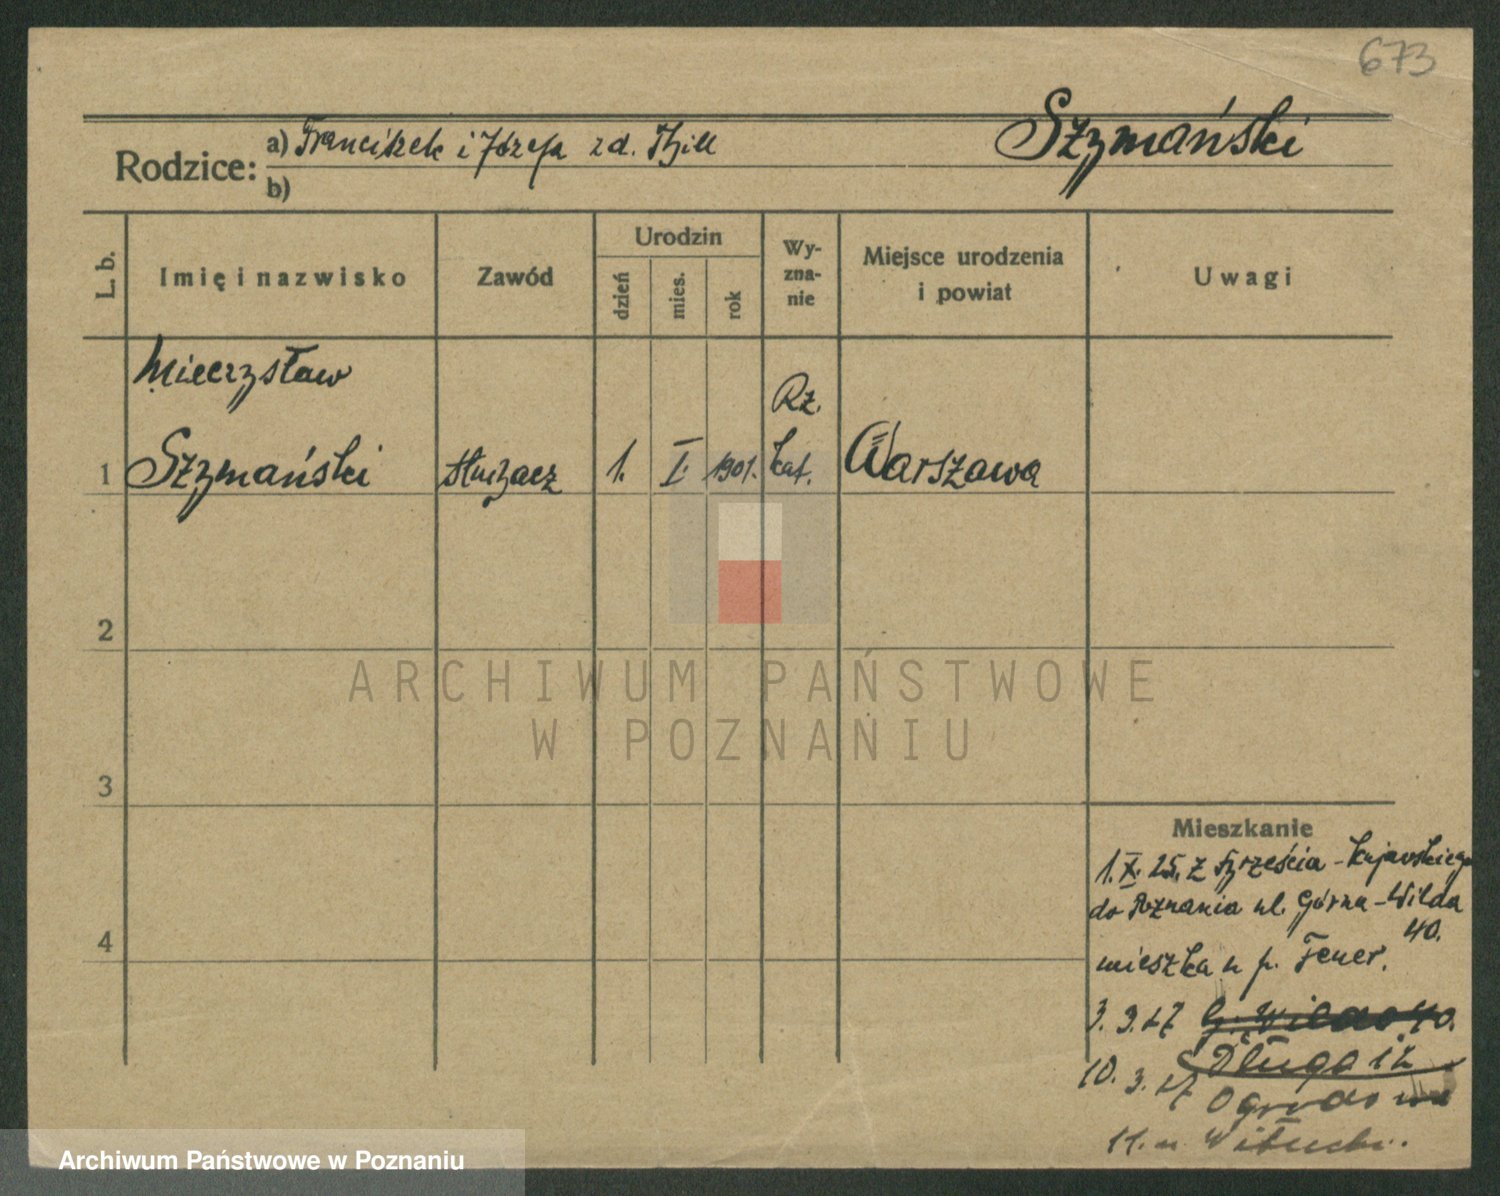 673
Szymański
Rodzice: a) Franciszek i Józefa zd. Thill
b)
L. b.
Imię i nazwisko
Zawód
Urodzin
dzień
mies.
rok
Wy-
zna-
nie
Miejsce urodzenia
i powiat
Uwagi
Mieczysław
Rz.
1 Szymański słuchacz 1. I. 1901. kat. Warszawa
2
3
4
ARCHIWUM PAŃSTWOWE
W POZNANIU
Mieszkanie
1. X. 25. z - kujawskiego
do Poznania ul. Górna - Wilda
40.
mieszka u p. Feuer.
3. 3. 27 G. Wilda 40.
Długa 12
10. 3. 27 Ogrodowa
11. u
Archiwum Państwowe w Poznaniu